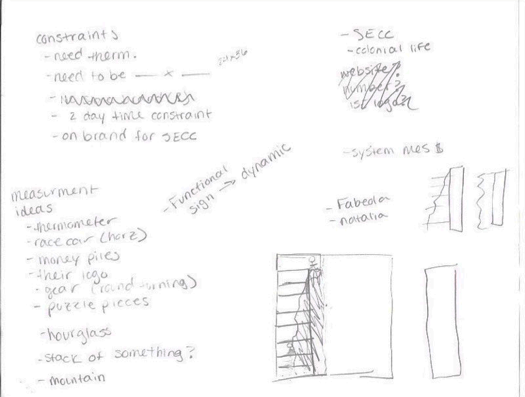 constraints
- need therm.
- need to be — x —
- 2 day time constraint
- on brand for SECC
- SECC
- colonial life
website?
number?
- system mes $
- Functional
sign → dynamic
- Fabeola
- natalia
measurment
ideas
- thermometer
- race car (horz)
- money piles
- their logo
- gear (round turning)
- puzzle pieces
- hourglass
- stack of something?
- mountain